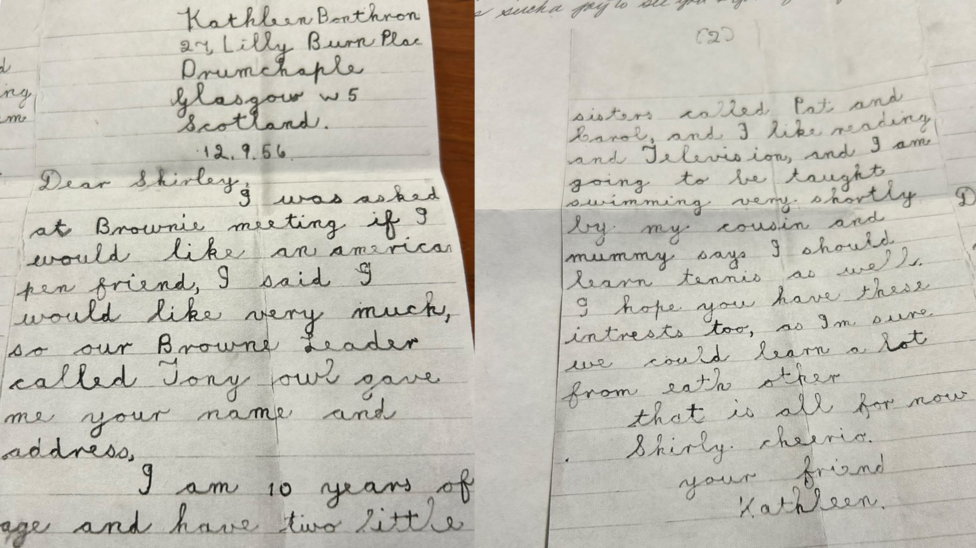 Kathleen Bonthron
27, Lilly Burn Plac
Drumchaple
Glasgow W5
Scotland.
12.9.56.
Dear Shirley,
I was asked
at Brownie meeting if I
would like an america
pen friend, I said I
would like very much,
so our Browne Leader
called Tony owl gave
me your name and
address,
I am 10 years of
age and have two little
such a joy to see you
(2)
sisters called Pat and
Carol, and I like reading
and Television, and I am
going to be taught
swimming very. shortly
by. my cousin and
mummy says I should
learn tennis as well.
I hope you have these
intrests too, as Im sure
we could learn a lot
from eath other
that is all for now
Shirly. cheerio.
your friend
Kathleen.